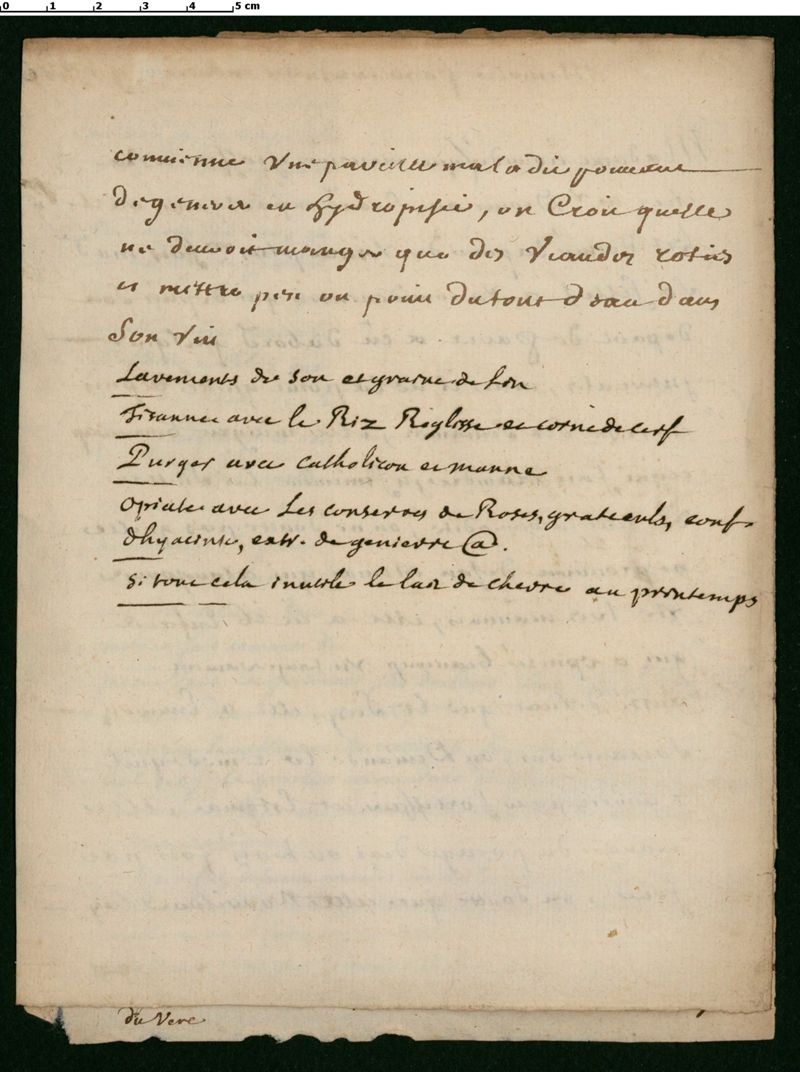 0 1 2 3 4 5 cm
convienne Vne pareille maladie pouvant
degenerer en hydropisie, on Croit quelle
ne devroit manger que des Viandes roties
et mettre peu ou point du tout deau dans
Son Vin
Lavements de son et graine de lin
Tisanne avec le Riz Reglisse et corne de cerf
Purger avec catholicon et manne
opiate avec Les conserves de Roses, grateculs, conf.
dhyacinte, extr. de genievre @.
si tout cela inutile le lait de chevre au printemps
du Vere